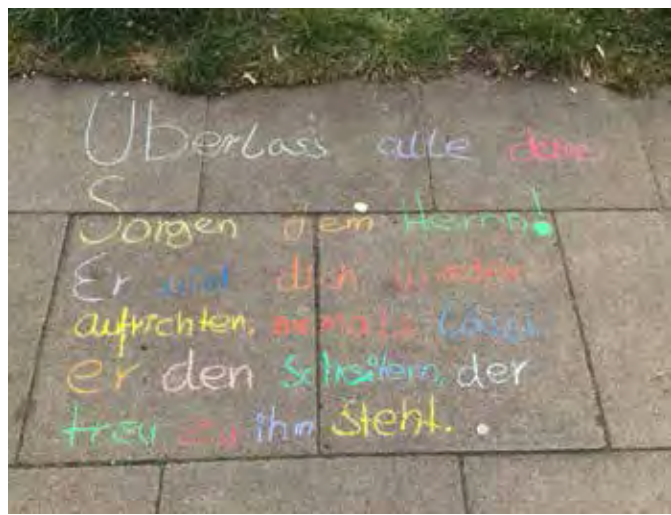 Überlass alle deine
Sorgen dem Herrn!
Er wird dich wieder
aufrichten; niemals lässt
er den scheitern, der
treu zu ihm steht.